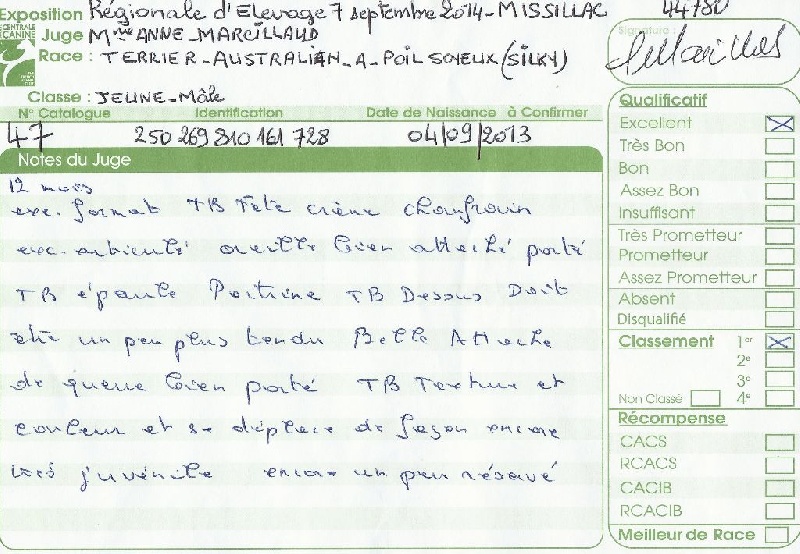 Exposition Régionale d'Elevage 7 septembre 2014-MISSILLAC 44780
CENTRALE CANINE
Juge Mme ANNE-MARCILLAUD
Race : TERRIER-AUSTRALIEN-A-POIL SOYEUX (SILKY)
Classe : JEUNE-Mâle
Signature :
N° Catalogue Identification Date de Naissance à Confirmer
47 250 269 810 161 728 04/09/2013
Notes du Juge
12 mois
exc. format TB Tête crâne chanfrein
exc. articulé oreille bien attaché porté
TB épaule Poitrine TB Dessus Doit
être un peu plus tendu Belle Attache
de queue bien porté TB Texture et
couleur et se déplace de façon encore
très juvénile encore un peu réservé
Qualificatif
Excellent
Très Bon
Bon
Assez Bon
Insuffisant
Très Prometteur
Prometteur
Assez Prometteur
Absent
Disqualifié
Classement 1er
2e
3e
Non Classé 4e
Récompense
CACS
RCACS
CACIB
RCACIB
Meilleur de Race